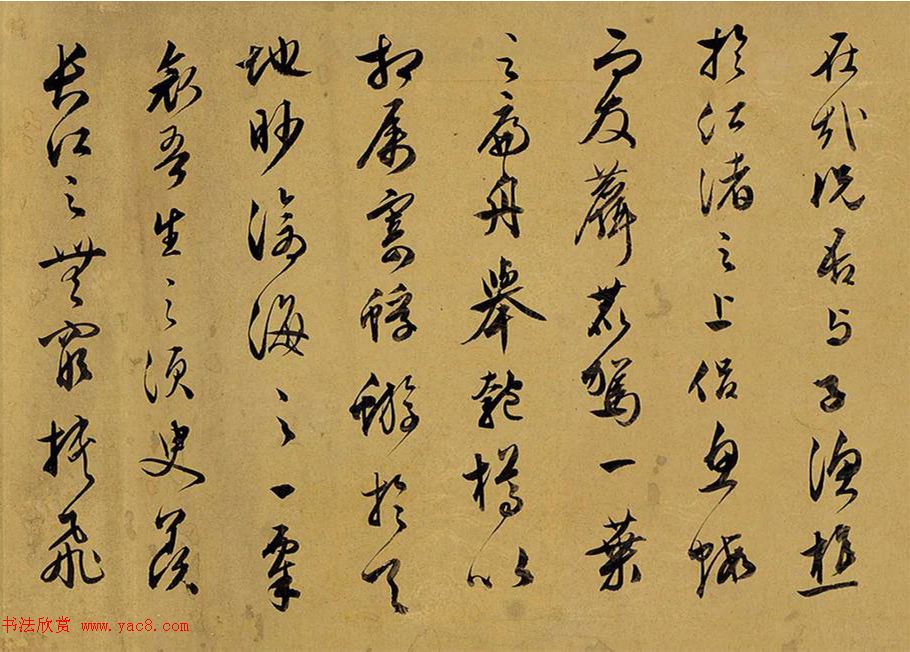 在哉況吾與子漁樵
於江渚之上侶魚蝦
而友麋鹿駕一葉
之扁舟舉匏樽以
相屬寄蜉蝣於天
地眇滄海之一粟
哀吾生之須臾羨
長江之無窮挾飛
书法欣赏 www.yac8.com